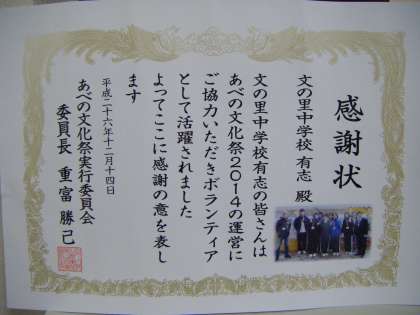 感謝状
文の里中学校 有志 殿
文の里中学校有志の皆さんは
あべの文化祭2014の運営に
ご協力いただきボランティア
として活躍されました
よってここに感謝の意を表し
ます
平成二十六年十二月十四日
あべの文化祭実行委員会
委員長 重富 勝己